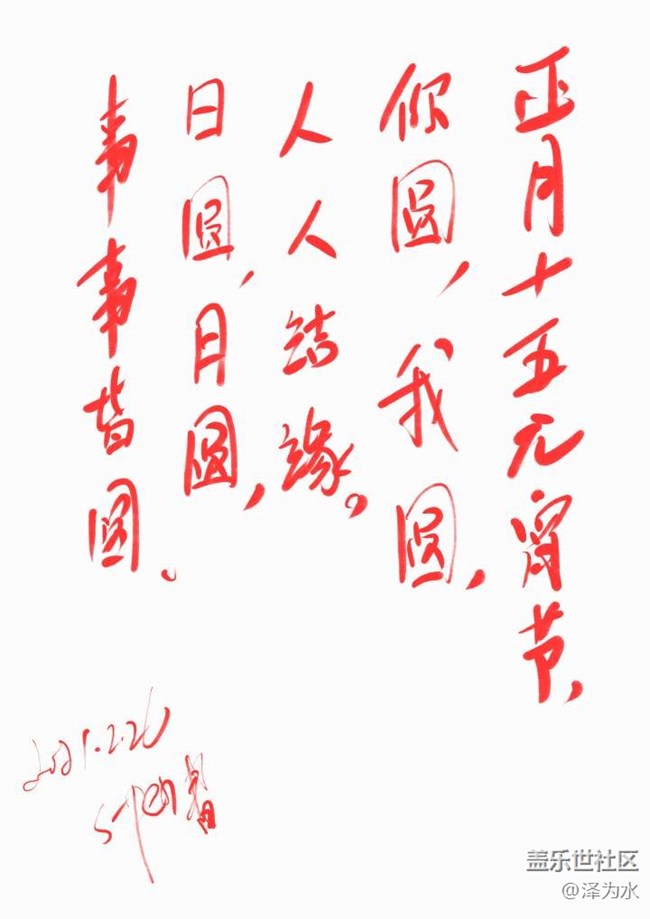 正月十五元宵节，
你圆，我圆，
人人结缘。
日圆，月圆，
事事皆圆。
2021.2.26
S Pen
盖乐世社区
@泽为水